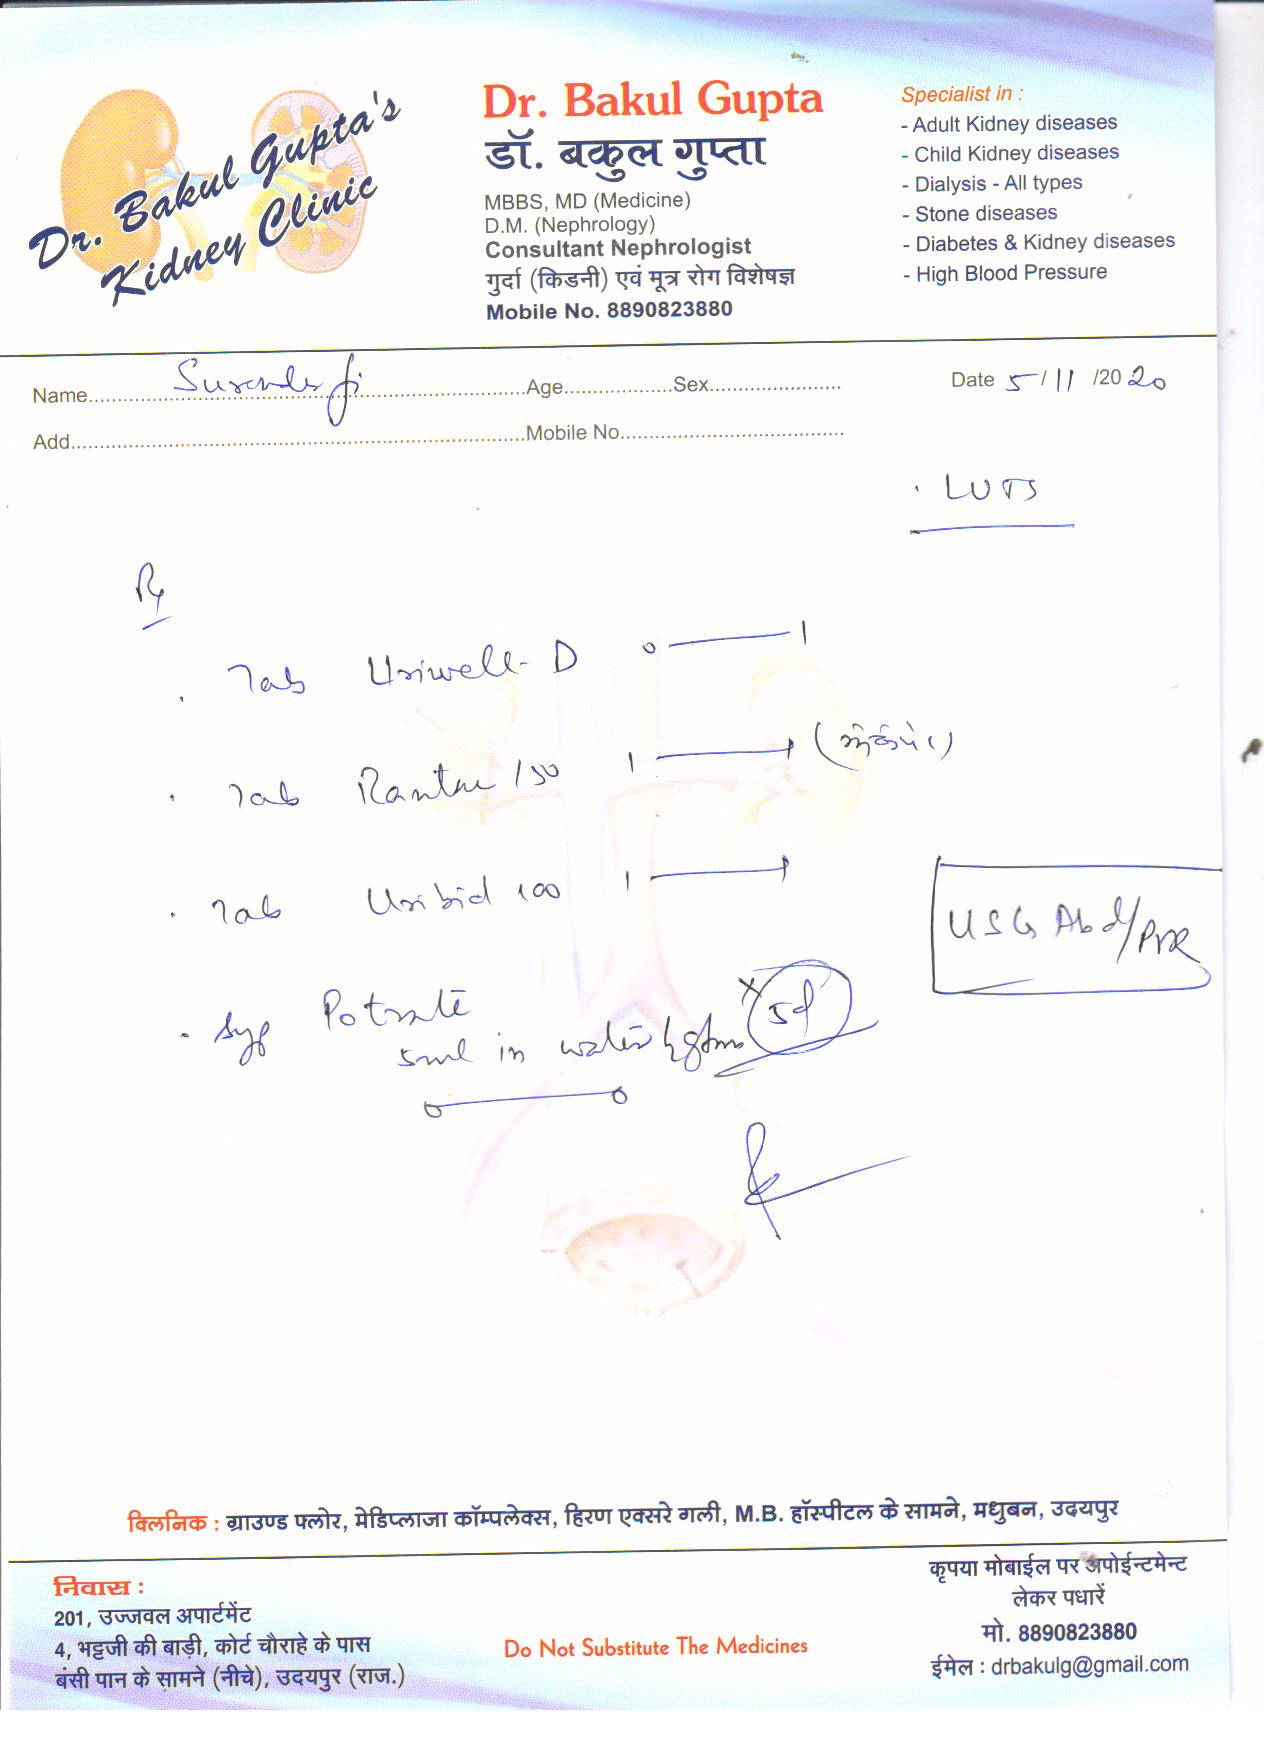 Dr. Bakul Gupta's
Kidney Clinic
Dr. Bakul Gupta
डॉ. बकुल गुप्ता
MBBS, MD (Medicine)
D.M. (Nephrology)
Consultant Nephrologist
गुर्दा (किडनी) एवं मूत्र रोग विशेषज्ञ
Mobile No. 8890823880
Specialist in :
- Adult Kidney diseases
- Child Kidney diseases
- Dialysis - All types
- Stone diseases
- Diabetes & Kidney diseases
- High Blood Pressure
Name.......... ji ..........Age..........Sex..........
Date 5/11/2020
Add..........Mobile No..........
. LUTS
Rx
. Tab Uriwell-D 0 — 1
. Tab 150 1 — 1
. Tab Uribid 100 1 — 1
USG Abd/PVR
. Syp Potrate x 5d
5ml in water
0 — 0
क्लिनिक : ग्राउण्ड फ्लोर, मेडिप्लाजा कॉम्पलेक्स, हिरण एक्सरे गली, M.B. हॉस्पीटल के सामने, मधुबन, उदयपुर
निवास :
201, उज्जवल अपार्टमेंट
4, भट्टजी की बाड़ी, कोर्ट चौराहे के पास
बंसी पान के सामने (नीचे), उदयपुर (राज.)
Do Not Substitute The Medicines
कृपया मोबाईल पर अपोईन्टमेन्ट
लेकर पधारें
मो. 8890823880
ईमेल : drbakulg@gmail.com